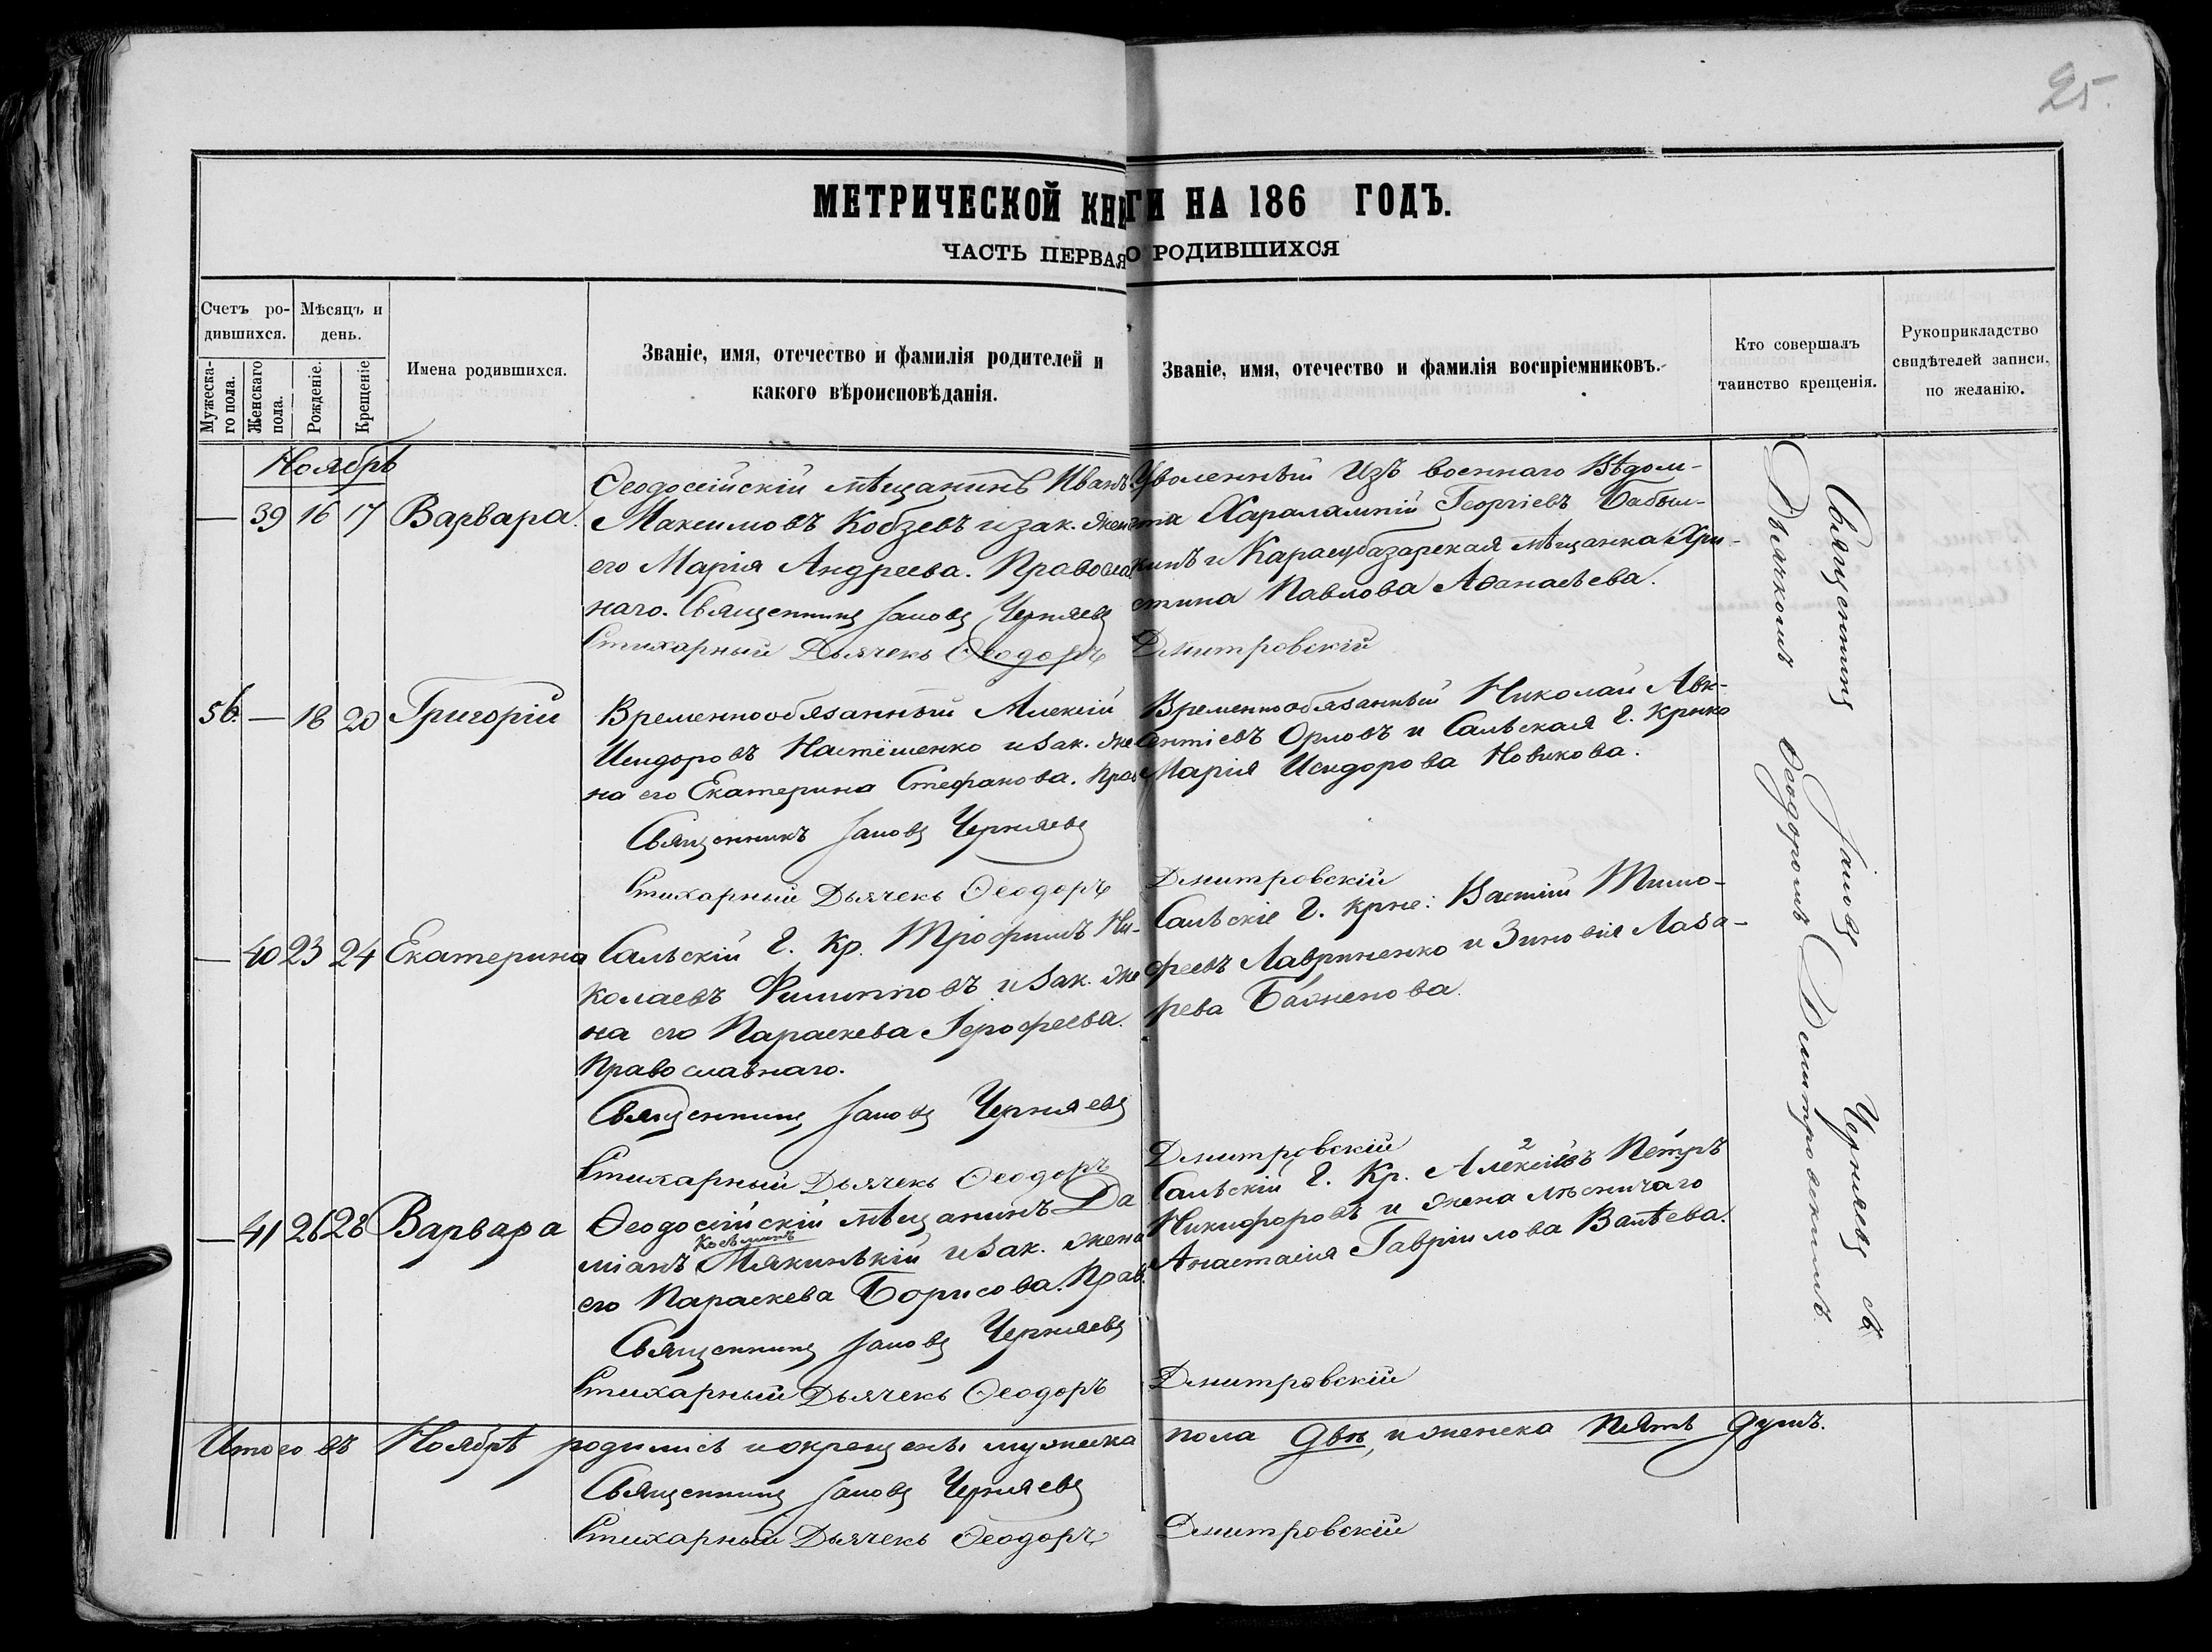 25.
МЕТРИЧЕСКОЙ КНИГИ НА 186 ГОДЪ.
ЧАСТЬ ПЕРВАЯ О РОДИВШИХСЯ
Счетъ ро-
дившихся.
Мужеска-
го пола.
Женскаго
пола.
Мѣсяцъ и
день.
Рожденіе.
Крещеніе
Имена родившихся.
Званіе, имя, отечество и фамилія родителей и
какого вѣроисповѣданія.
Званіе, имя, отечество и фамилія воспріемниковъ.
Кто совершалъ
таинство крещенія.
Рукоприкладство
свидѣтелей записи,
по желанію.
Ноябрь
— 39 16 17 Варвара.
Ѳеодосійскій мѣщанинъ Иванъ
Максимовъ Кобзевъ и зак. жен
его Марія Андреева. Правосла
наго. Священникъ Іаковъ Черняевъ
Стихарный Дьячекъ Ѳеодоръ
Уволенный Изъ военнаго Вѣдом-
ства Харалампій Георгіевъ Бабыш-
кинъ и Карасубазарская мѣщанка Хри-
стина Павлова Аѳанасьева.
Дмитровскій
56. — 18 20 Григорій
Временнообязанный Алексій
Исидоровъ Настёшенко и зак. же
на его Екатерина Стефанова. Прав
Священникъ Іаковъ Черняевъ
Стихарный Дьячекъ Ѳеодоръ
Временнообязанный Николай Авк-
сентіевъ Орловъ и Сальская Г. Крнка
Марія Исидорова Новикова.
Дмитровскій
— 40 23 24 Екатерина
Сальскій Г. Кр. Трофимъ Ни-
колаевъ Филипповъ и зак. же
на его Параскева Іерофеева.
Православнаго.
Священникъ Іаковъ Черняевъ
Стихарный Дьячекъ Ѳеодоръ
Сальскіе Г. крне: Василій Тимо-
феевъ Лавриненко и Зиновія Лаза-
рева Баженова.
Дмитровскій
— 41 26 28 Варвара
Ѳеодосійскій мѣщанинъ Да
Косьминъ
міанъ Мякинькій и зак. жена
его Параскева Борисова. Прав.
Священникъ Іаковъ Черняевъ
Стихарный Дьячекъ Ѳеодоръ
2
Сальскій Г. Кр. Алексіевъ Петръ
Никифоровъ и жена лѣсничаго
Анастасія Гавріилова Валѣева.
Дмитровскій
Священникъ Іаковъ Черняевъ съ
Дьячкомъ Ѳеодоромъ Дмитровскимъ
Итого въ Ноябрѣ родились и окрещены мужеска пола два, и женска пять душъ.
Священникъ Іаковъ Черняевъ
Стихарный Дьячекъ Ѳеодоръ Дмитровскій